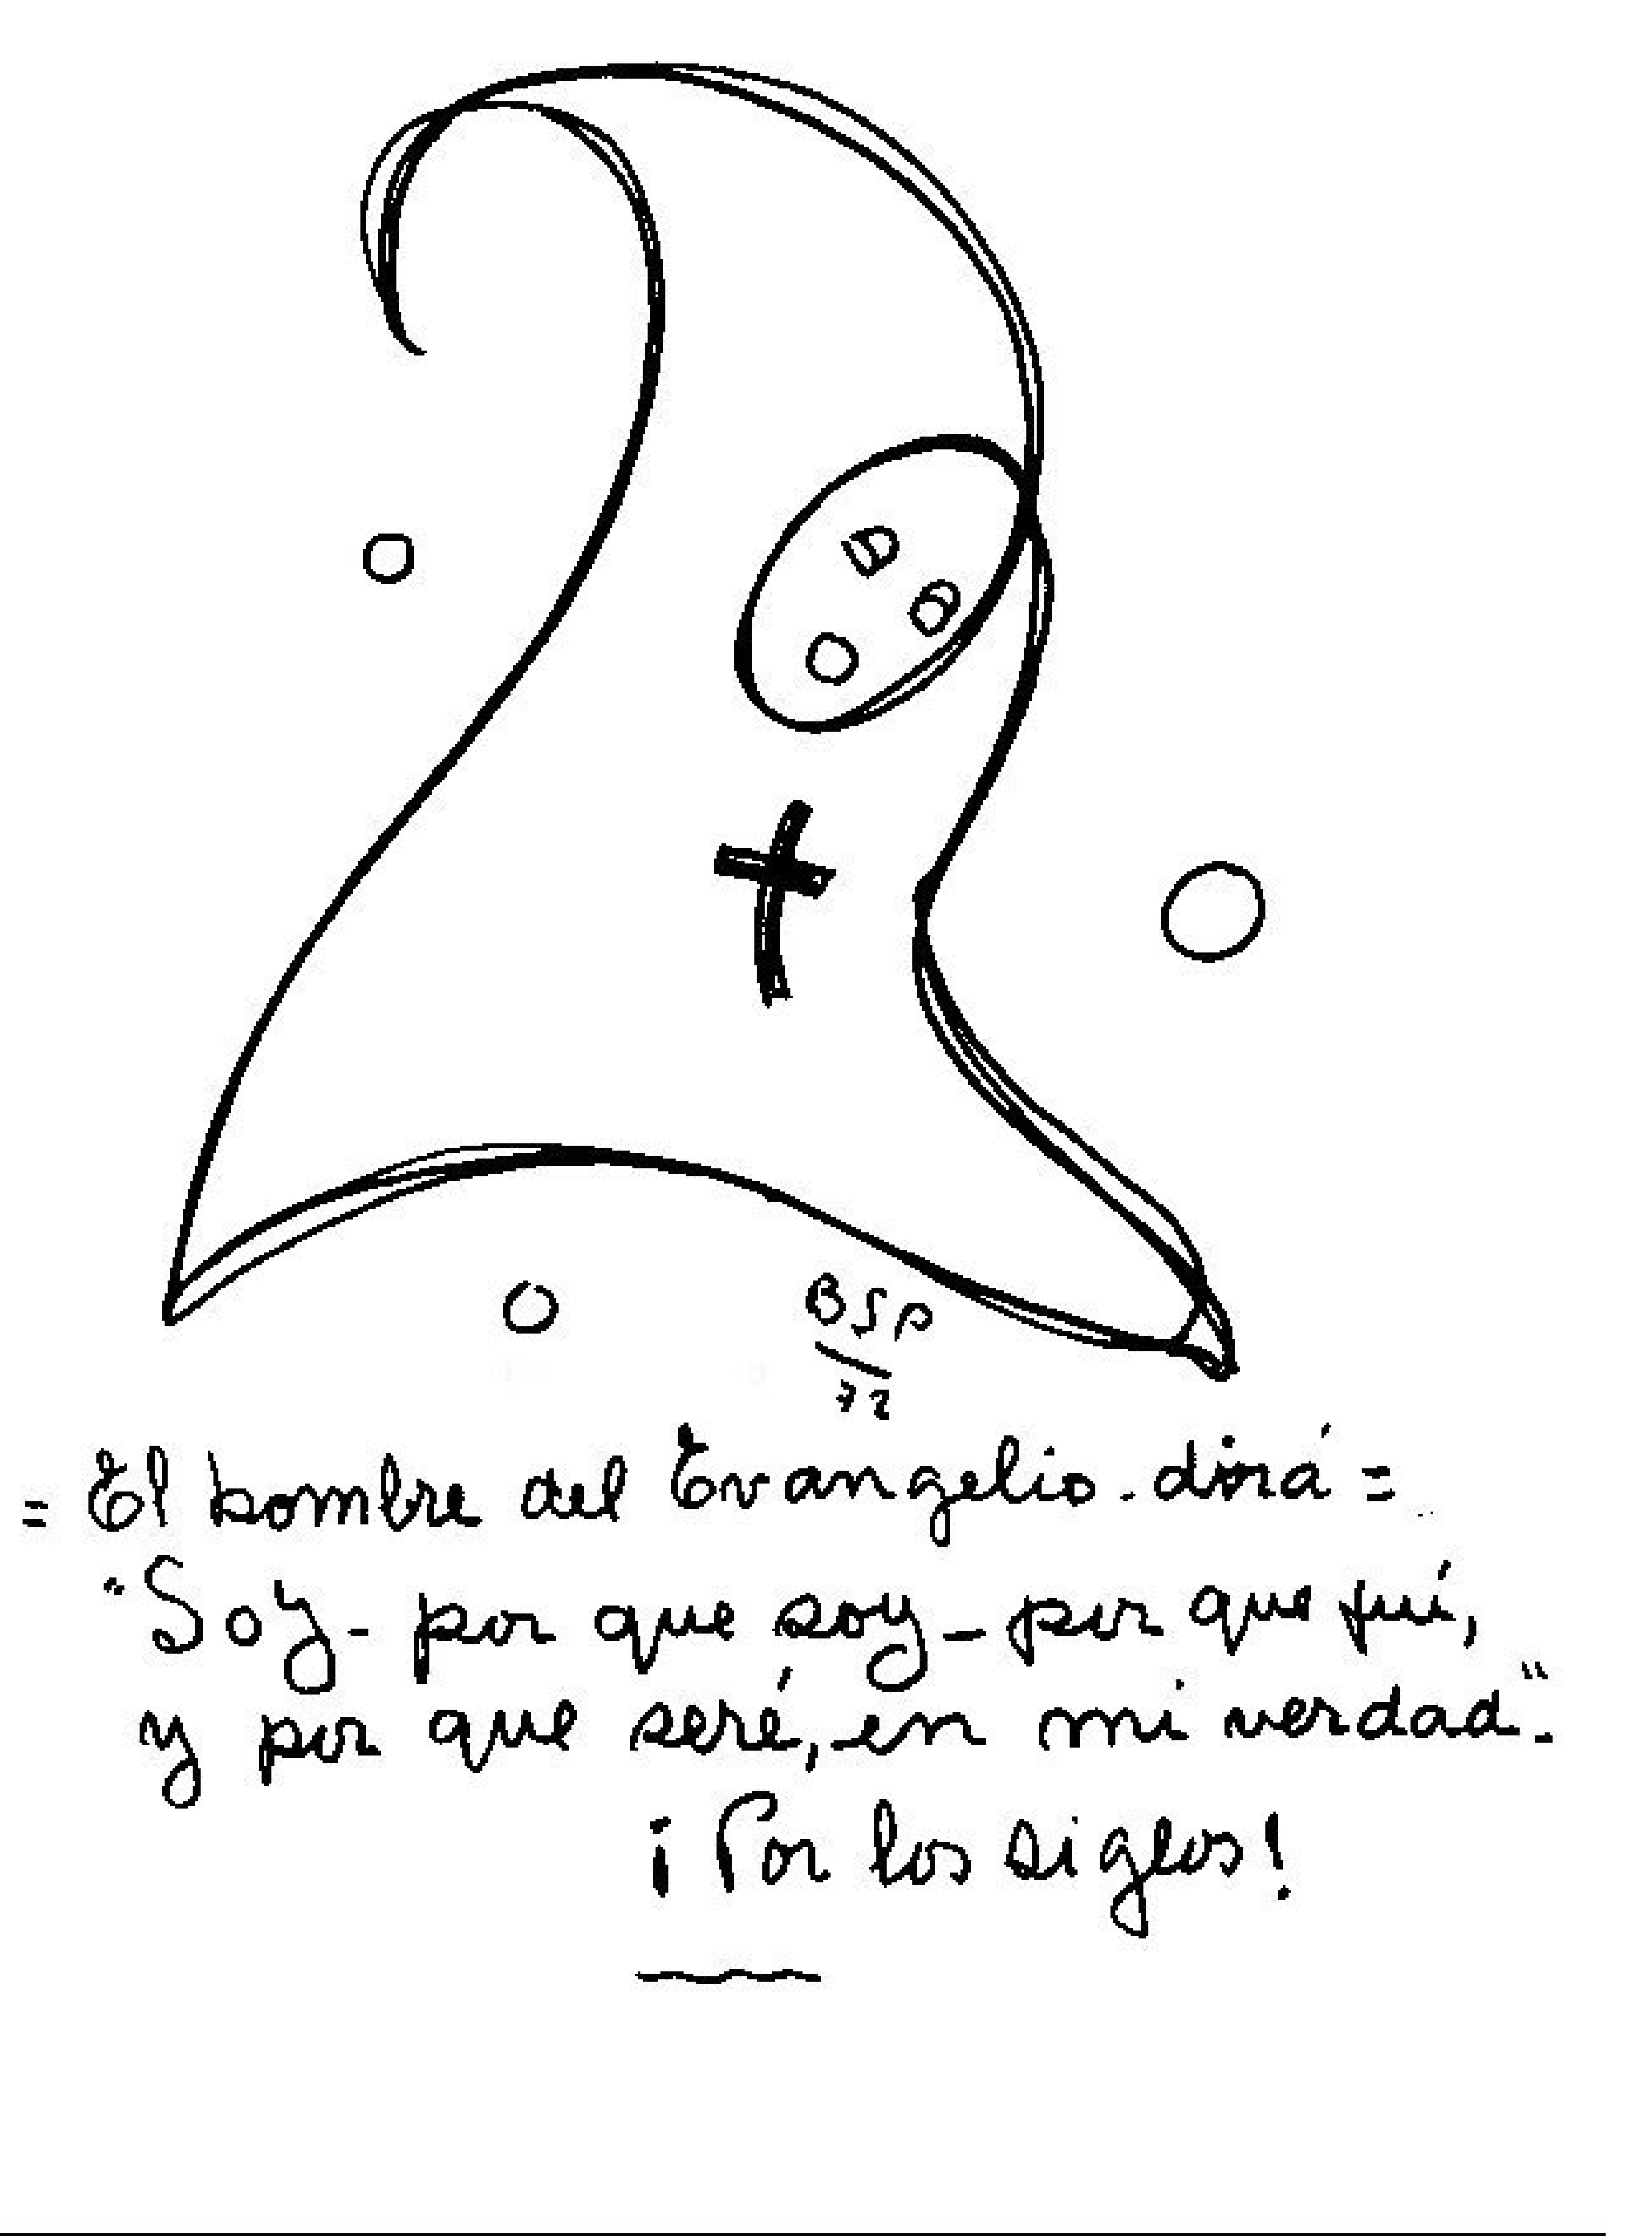 BSP
72
= El hombre del Evangelio. dirá =
"Soy - por que soy - por que fuí,
y por que seré, en mi verdad".
¡Por los siglos!